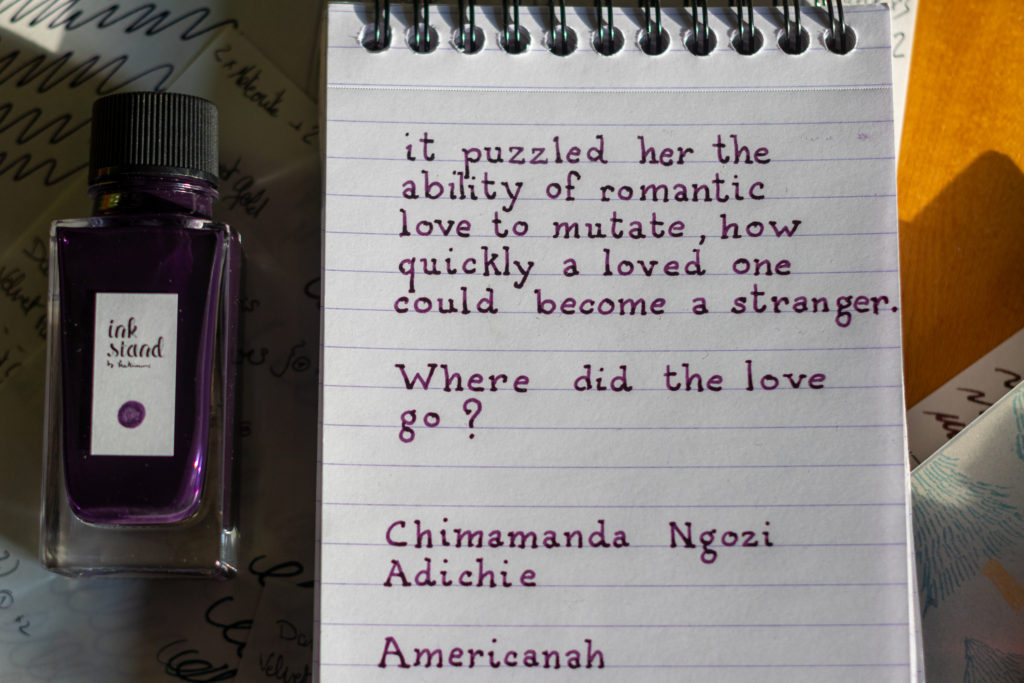 it puzzled her the
ability of romantic
love to mutate, how
quickly a loved one
could become a stranger.
Where did the love
go?
Chimamanda Ngozi
Adichie
Americanah
ink
stand
by
Gold
Velvet